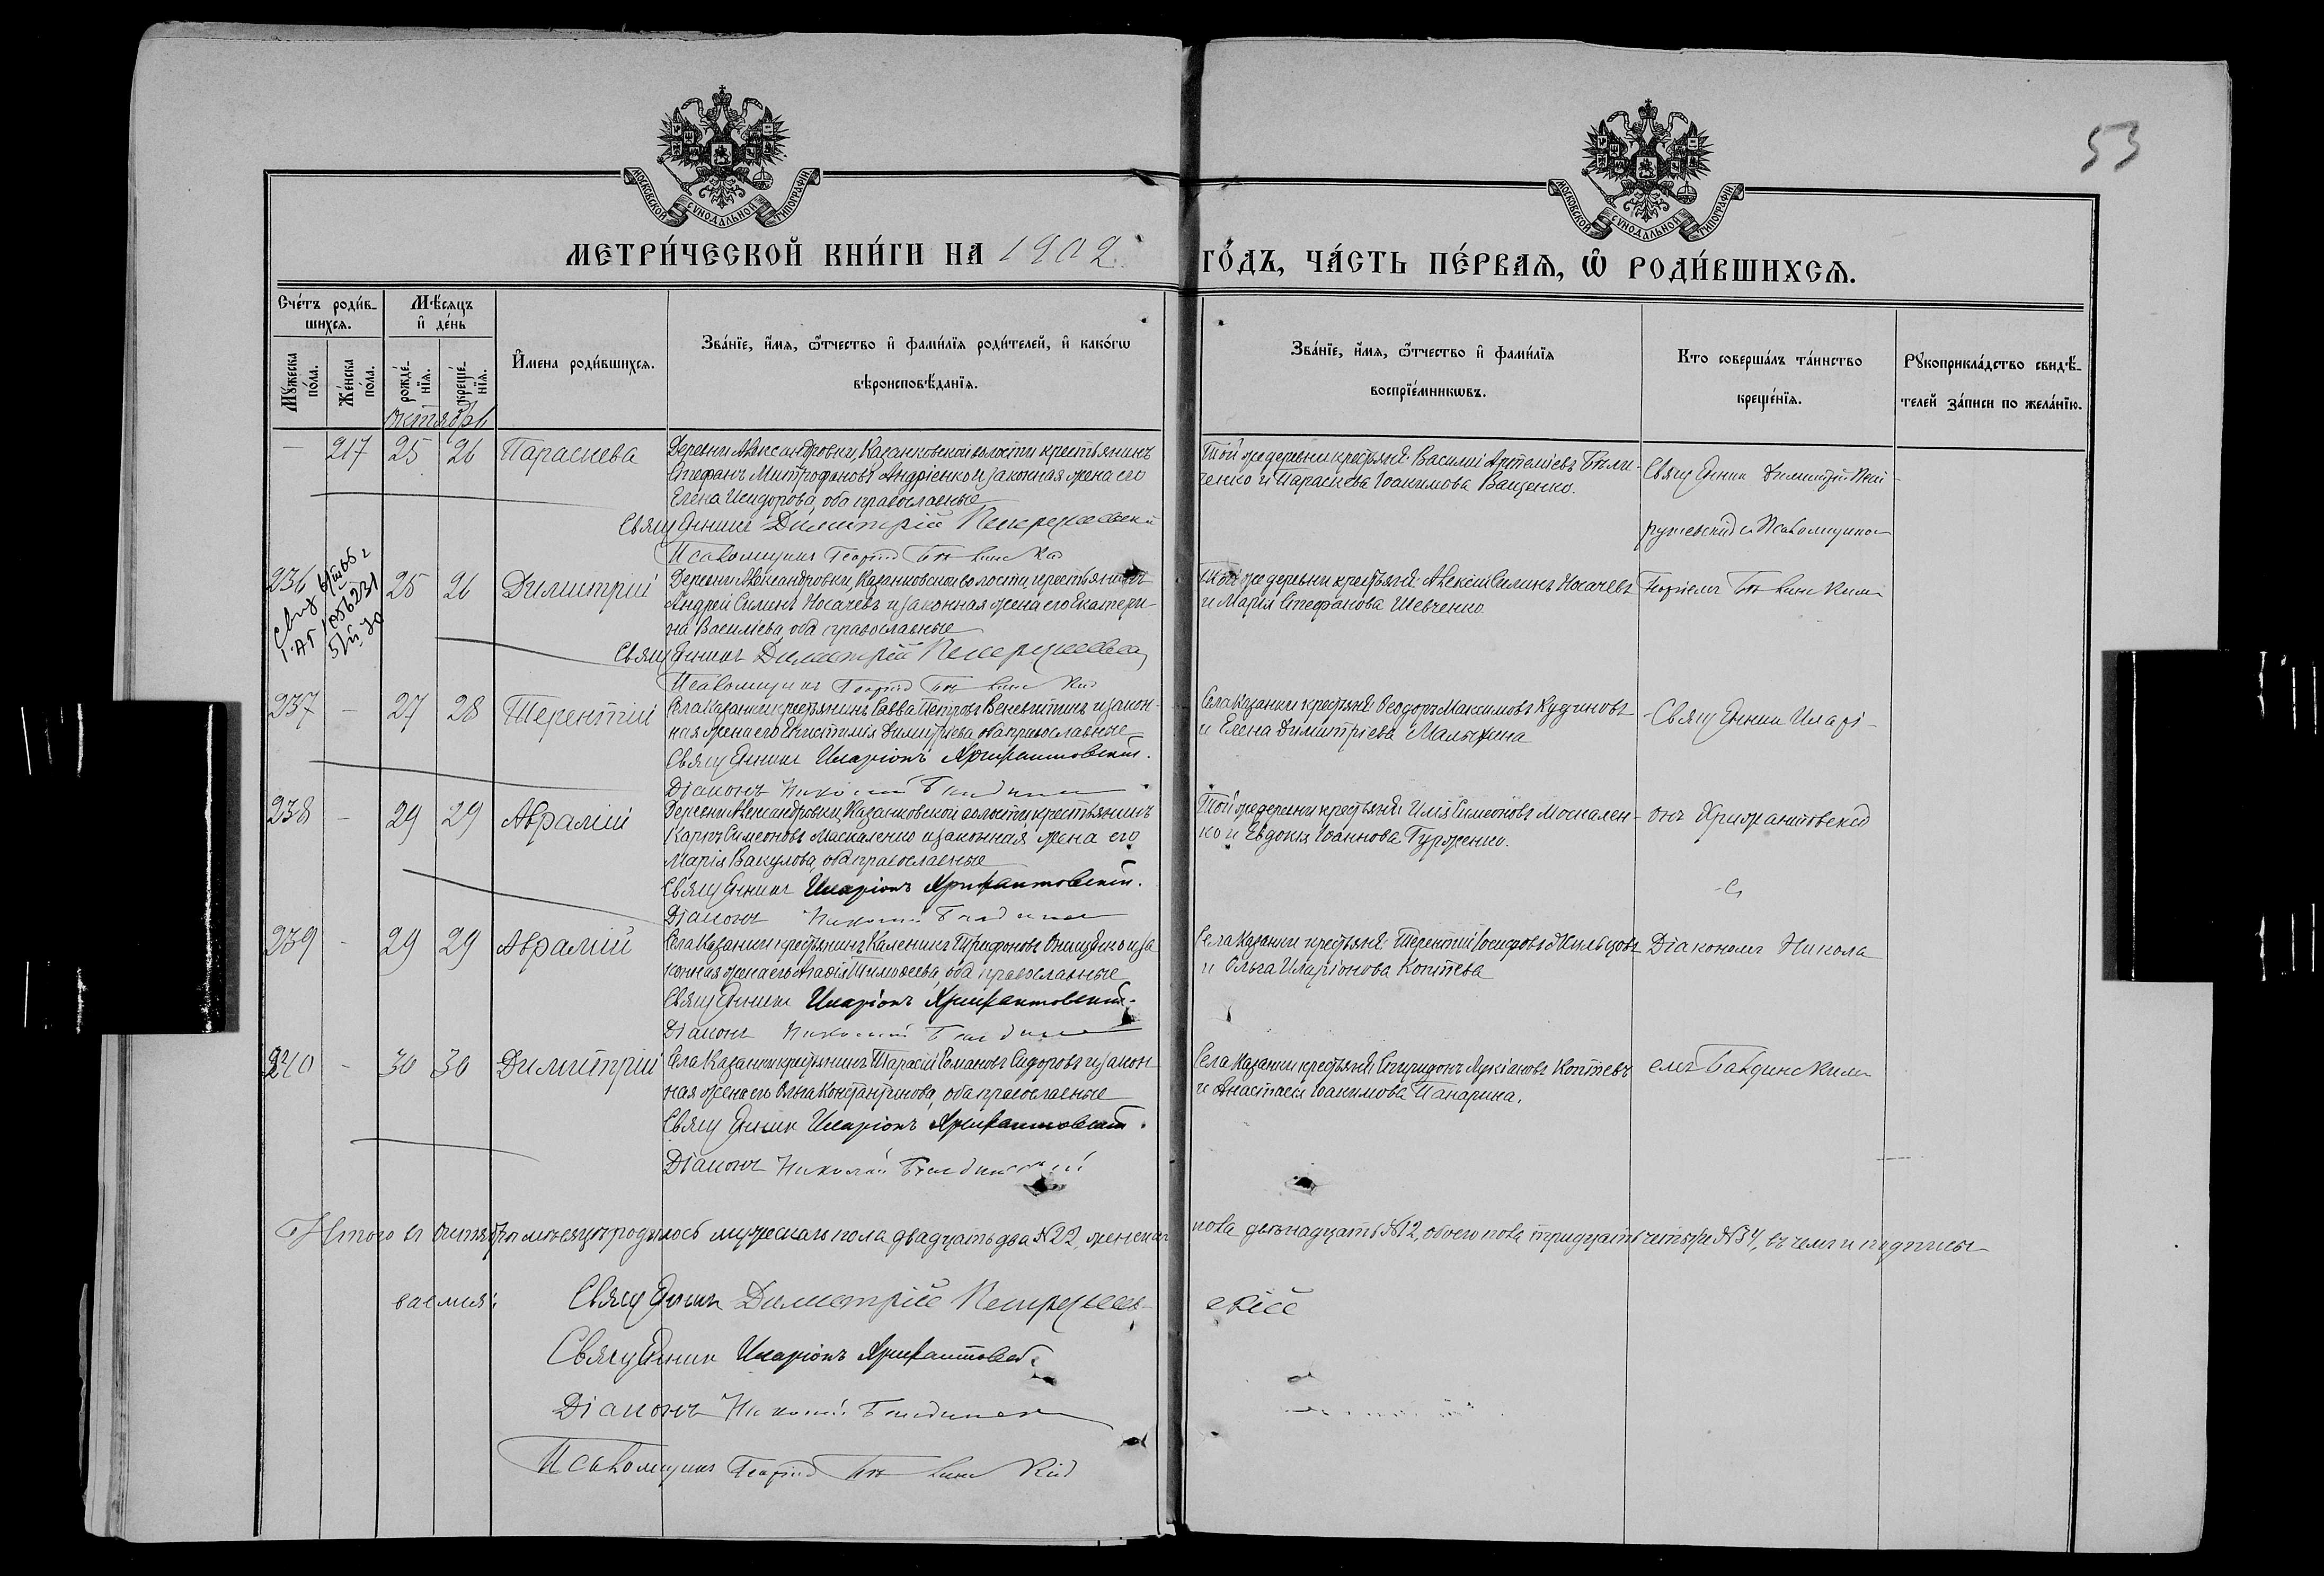 53
МОСКОВСКОЙ СѴНОДАЛЬНОЙ ТИПОГРАФІИ
МОСКОВСКОЙ СѴНОДАЛЬНОЙ ТИПОГРАФІИ
МЕТРИ́ЧЕСКОЙ КНИ́ГИ НА 1902
ГО́ДЪ, ЧА́СТЬ ПЕ́РВАѦ, Ѽ РОДИ́ВШИХСѦ.
Сче́тъ роди́в-
шихсѧ.
Мꙋжеска по́ла.
Же́нска по́ла.
Мѣ́сѧцъ
и҆ де́нь
рожде́-
нїѧ.
креще́-
нїѧ.
И҆мена роди́вшихсѧ.
Зва́нїе, и҆́мѧ, ѻ҆́тчество и҆ фами́лїѧ роди́телей, и҆ како́гѡ
вѣроисповѣ́данїѧ.
Зва́нїе, и҆́мѧ, ѻ҆́тчество и҆ фами́лїѧ
воспрїе́мникѡвъ.
Кто соверша́лъ та́инство
креще́нїѧ.
Рꙋкоприкла́дство свидѣ́-
телей за́писи по жела́нїю.
Октябрь
— 217 25 26 Параскева
Деревни Александровки, Казанковской волости крестьянинъ
Стефанъ Митрофановъ Андріенко и законная жена его
Елена Исидорова, оба православные
Священникъ Димитрій
Псаломщикъ Георгій
Той же деревни крестьяне: Василій Артеміевъ Били-
ченко и Параскева Іоакимова Ващенко.
Священник Димитрій
с Псаломщиком
236 25 26 Димитрій
Деревни Александровки, Казанковской волости, крестьянинъ
Андрей Силинъ Носачевъ и законная жена его Екатери-
на Василіева, оба православные
Священникъ Димитрій
Псаломщикъ Георгій
Той же деревни крестьяне: Алексій Силинъ Носачевъ
и Марія Стефанова Шевченко
Георгіемъ
237 — 27 28 Терентій
Села Казанки крестьянинъ Савва Петровъ Веневитинъ и закон-
ная жена его Димитріева, оба православные
Священникъ Иларіонъ Хрисанфовскій.
Діаконъ Николай
Села Казанки крестьяне: Ѳеодоръ Максимовъ
и Елена Димитріева Малыхина
Священник Иларі-
238 — 29 29 Аврамій
Деревни Александровки, Казанковской волости крестьянинъ
Карпъ Симеоновъ Москаленко и законная жена его
Марія Вакулова, оба православные
Священникъ Иларіонъ Хрисанфовскій.
Діаконъ Николай
Той же деревни крестьяне: Илія Симеоновъ Москален-
ко и Евдокія Іоаннова Гурженко.
онъ
с
239 — 29 29 Аврамій
Села Казанки крестьянинъ Каленикъ Трифоновъ и за-
конная жена его Агаѳія Тимоѳеева, оба православные
Священникъ Иларіонъ Хрисанфовскій.
Діаконъ Николай
Села Казанки крестьяне: Терентій Іосифовъ
и Ольга Иларіонова Коптева
Діакономъ Никола-
240 — 30 30 Димитрій
Села Казанки крестьянинъ Тарасій Романовъ Сидоровъ и закон-
ная жена его Ольга Константинова, оба православные
Священник Иларіонъ Хрисанфовскій.
Діаконъ Николай
Села Казанки крестьяне: Спиридонъ Лукіановъ Коптевъ
и Анастасія Іоакимова Панарина.
емъ
Итого въ Октябрѣ мѣсяцѣ родилось мужескаго пола двадцать два №22, женскаго пола двѣнадцать №12, обоего пола тридцать четыре №34, въ чемъ и подписы-
ваемся:
Священник Димитрій
скій
Священник Иларіонъ
Діаконъ Николай
Псаломщикъ Георгій